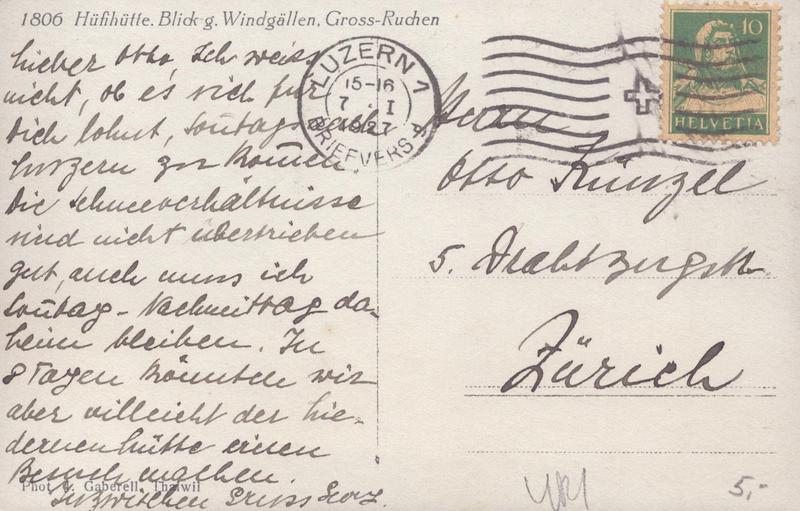 1806 Hüfihütte. Blick g. Windgällen, Gross-Ruchen
Lieber Otto, Ich weiss
nicht, ob es sich für
Dich lohnt, Sontags nach
Luzern zu komen.
Die Schneeverhältnisse
sind nicht übertrieben
gut, auch muss ich
Sontag-Nachmittag da-
heim bleiben. In
8 Tagen könnten wir
aber villeicht der
einen
Besuch machen.
Inzwischen Gruss
Phot. J. Gaberell, Thalwil
LUZERN 1
15-16
7. I
1927
BRIEFVERS.
10
HELVETIA
Herrn
Otto Künzel
5. Drahtzugstr.
Zürich
5,-